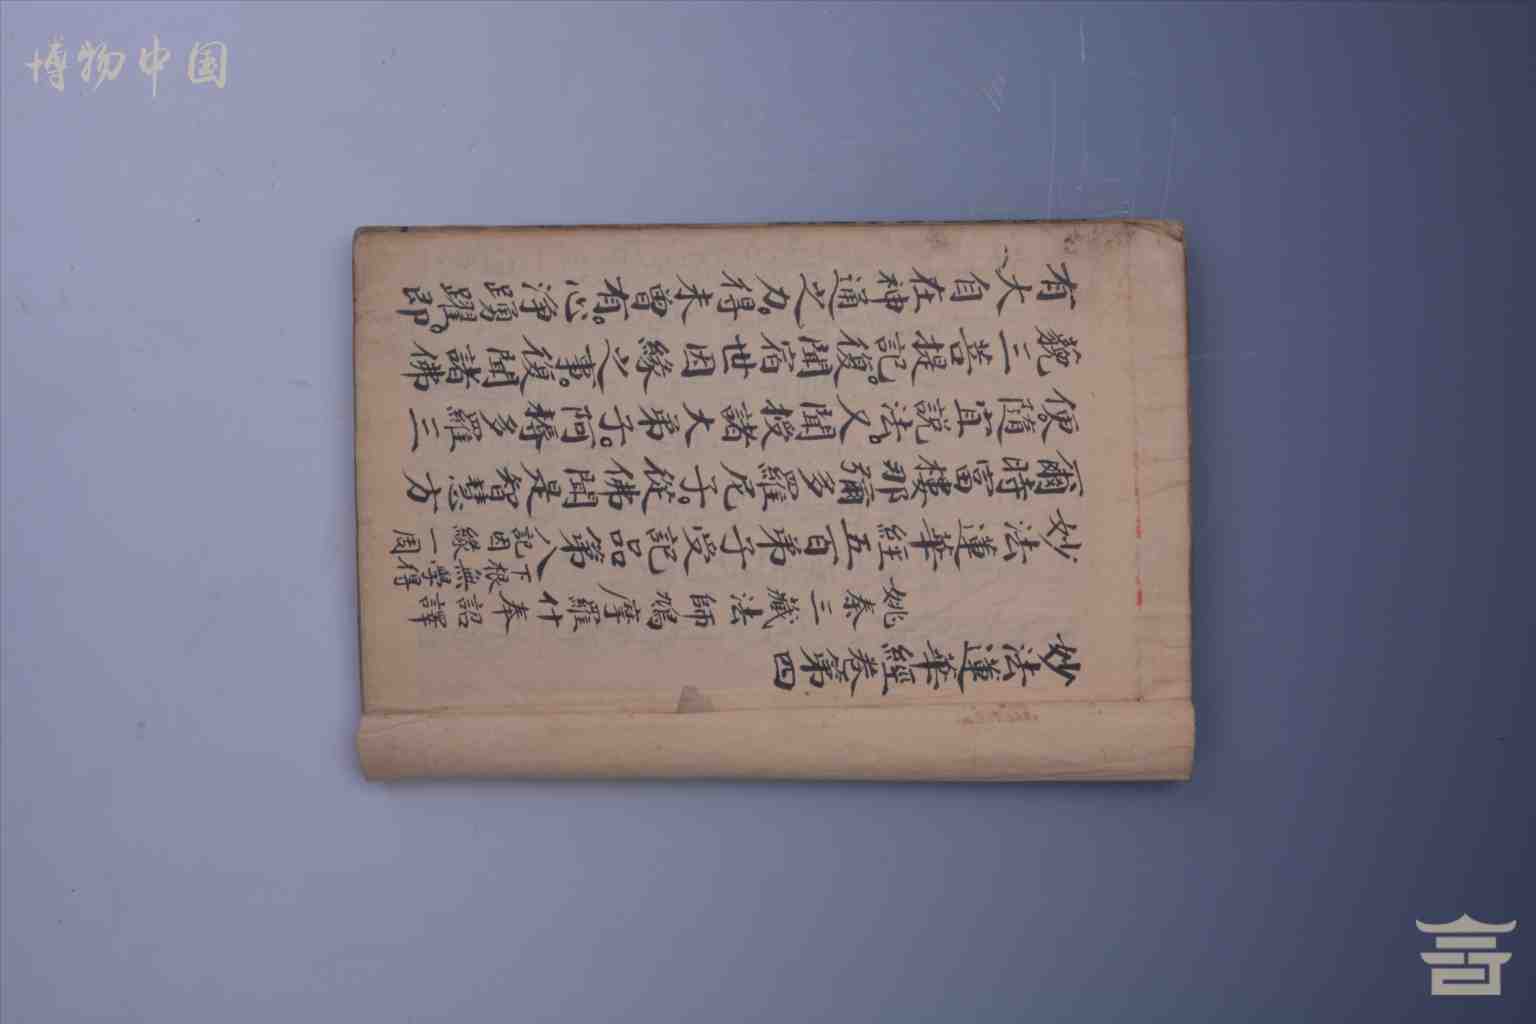 博物中国
妙法蓮華經卷第四
姚秦三藏法師鳩摩羅什奉詔譯
妙法蓮華經五百弟子受記品第八
下根無學得
記因緣一周
爾時富樓那彌多羅尼子。從佛聞是智慧方
便。隨宜說法。又聞授諸大弟子。阿耨多羅三
藐三菩提記。復聞宿世因緣之事。復聞諸佛
有大自在神通之力。得未曾有。心淨踴躍。即